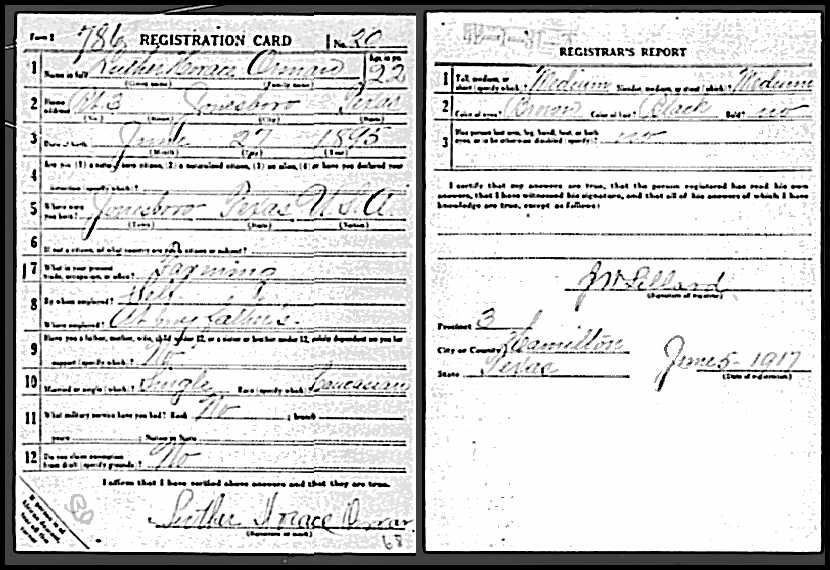 Form 1 786 REGISTRATION CARD No. 20
1 Name in full Luther Horace Age, in yrs. 22
(Given name) (Family name)
2 Home address Rt. 3 Jonesboro Texas
(No.) (City) (State)
3 Date of birth June 27 1895
(Month) (Day) (Year)
4 Are you (1) a natural born citizen, (2) a naturalized citizen, (3) an alien, (4) or have you declared your
intention (specify which)?
5 Where were you born? Jonesboro Texas U.S.A.
(Town) (State) (Nation)
6 If not a citizen, of what country are you a citizen or subject?
7 What is your present trade, occupation, or office? Farming
8 By whom employed? Self
Where employed? At my father's
9 Have you a father, mother, wife, child under 12, or a sister or brother under 12, solely dependent on you for
support (specify which)? No
10 Married or single (which)? Single Race (specify which)? Caucasian
11 What military service have you had? Rank No ; branch
years ; Nation or State
12 Do you claim exemption from draft (specify grounds)? No
I affirm that I have verified above answers and that they are true.
Luther Horace
(Signature or mark)
68
REGISTRAR'S REPORT
1 Tall, medium, or short (specify which)? Medium Slender, medium, or stout (which)? Medium
2 Color of eyes? Brown Color of hair? Black Bald? no
3 Has person lost arm, leg, hand, foot, or both
eyes, or is he otherwise disabled (specify)? no
I certify that my answers are true, that the person registered has read his own
answers, that I have witnessed his signature, and that all of his answers of which I have
knowledge are true, except as follows:
(Signature of registrar)
Precinct 3
City or County Hamilton
State Texas June 5 - 1917
(Date of registration)